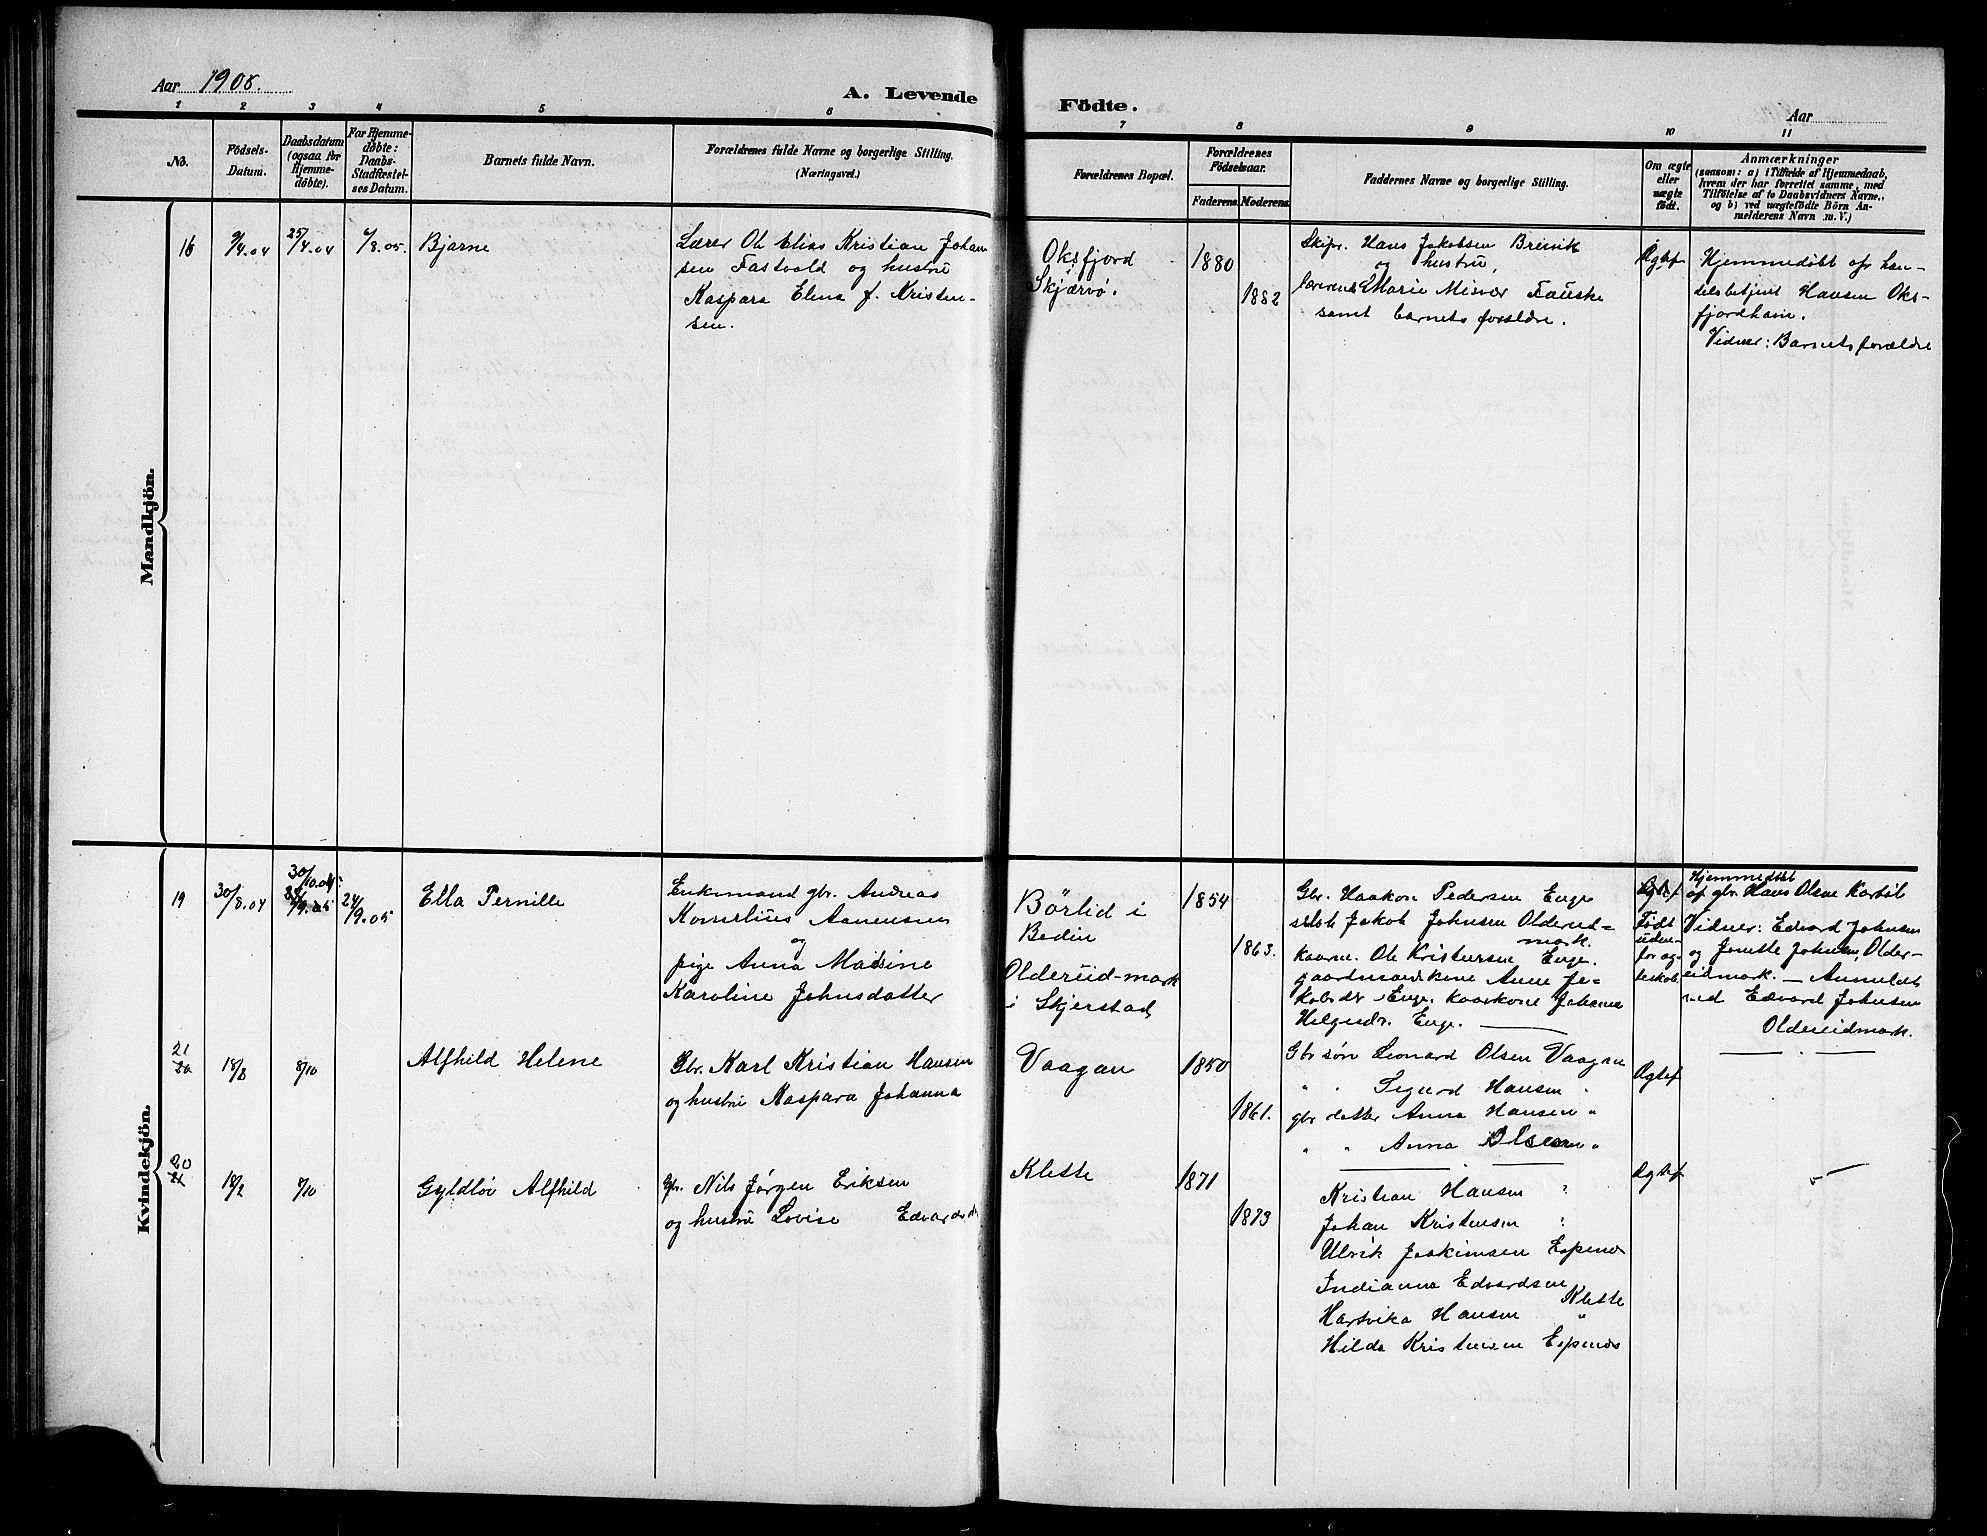 Aar 1905.
A. Levende
Födte.
Aar
1 2 3 4 5 6
7 8 9 10 11
No.
Födsels-
Datum.
Daabsdatum
(ogsaa for
Hjemme-
döbte).
For Hjemme-
döbte:
Daabs-
Stadfæstel-
ses Datum.
Barnets fulde Navn.
Forældrenes fulde Navne og borgerlige Stilling.
(Næringsvei.)
Forældrenes Bopæl.
Forældrenes
Födselsaar.
Faderens. Moderens.
Faddernes Navne og borgerlige Stilling.
Om ægte
eller
uægte
födt.
Anmærkninger
(saasom: a) i Tilfælde af Hjemmedaab,
hvem der har forrettet samme, med
Tilföielse af to Daabsvidners Navne,
og b) ved uægtefödte Börn An-
melderens Navn m. V.)
Mandkjön.
16
9/4.04
25/4.04
6/8.05.
Bjarne
Lærer Ole Elias Kristian Johan
sen Fastvold og hustru
Kaspara Elena f. Kristen-
sen.
Oksfjord
i
Skjærvö.
1880
1882
Skipr. Hans Jakobsen Breivik
og hustru,
Marie Miner Fauske
samt barnets forældre.
Ægtef
Hjemmedöbt af han-
delsbetjent Hansen Oks-
fjordhavn.
Vidner: Barnets forældre
Kvindekjön.
19
30/8.04
30/10.04.
24/9.05
Ella Pernille
Enkemand gbr. Andreas
Kornelius Aanensen
og
pige Anna Madsine
Karoline Johnsdatter
Börlid i
Bodin
Oldereid-mark
i Skjerstad
1854
1863.
Gbr. Haakon Pedersen Enge
Jakob Johnsen Oldereid-
mark.
Ole Kristensen Enge.
gaardmandskone Anne Ja-
kobsdr Enge. Johanna
Helgesdr. Enge.
Ægtef
Födt
uden-
for æg-
teskab.
Hjemmedöbt
af gbr. Hans Olsen Karbøl
Vidner: Edvard Johnsen
og Jenette Johnsen, Older-
eidmark. — Anmeldt
ved Edvard Johnsen
Oldereidmark.
21
20
18/8
8/10
Alfhild Helene
Gbr. Karl Kristian Hansen
og hustru Kaspara Johanna
Vaagan
1850
1861.
Gbr sön Leonard Olsen Vaagan
" " Sigurd Hansen "
gbr datter Anna Hansen "
" " Anna Olsen "
Ægtef
20
21
18/2
8/10
Gyldlöv Alfhild
Gbr. Nils Jørgen Eriksen
og hustru Lovise Edvardsdr
Klette
1871
1873
Kristian Hansen "
Johan Kristensen "
Ulrik Joakimsen Espenes
Indianna Edvardsen
Klette
Hartvika Hansen "
Hilda Kristensen Espenes
Ægtef